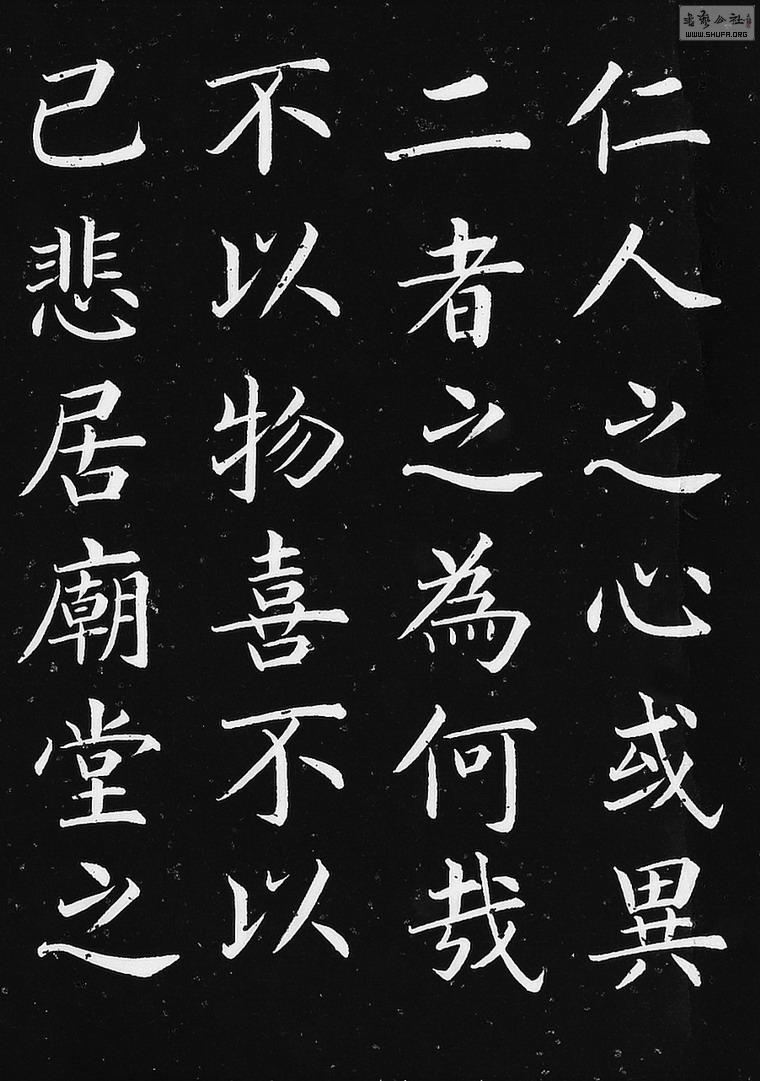 仁人之心或異
二者之為何哉
不以物喜不以
己悲居廟堂之
WWW.SHUFA.ORG